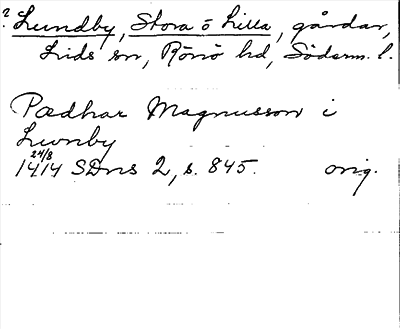 ? Lundby, Stora o Lilla, gårdar,
Lids sn, Rönö hd, Söderm. l.
Pædhar Magnusson i
Lunby
24/8
1414 SDns 2, s. 845. orig.